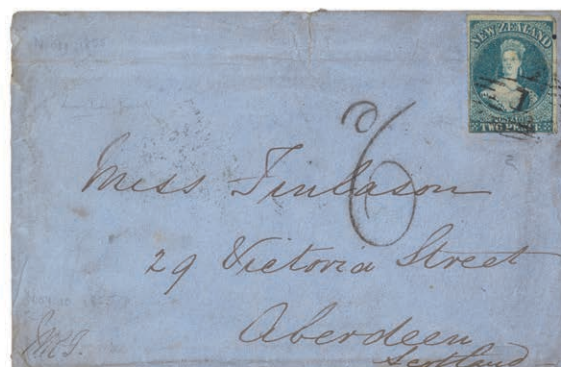 NEW ZEALAND
TWO PENCE
6
Miss Finlason
29 Victoria Street
Aberdeen
Scotland